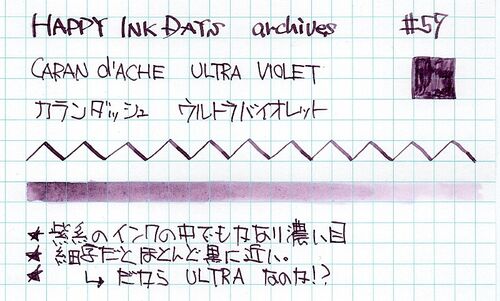 HAPPY INK DAYS archives #57
CARAN d'ACHE ULTRA VIOLET
カランダッシュ ウルトラバイオレット
★ 紫系のインクの中でもかなり濃い目
★ 細字だとほとんど黒に近い。
★ ↳ だから ULTRA なのか!?